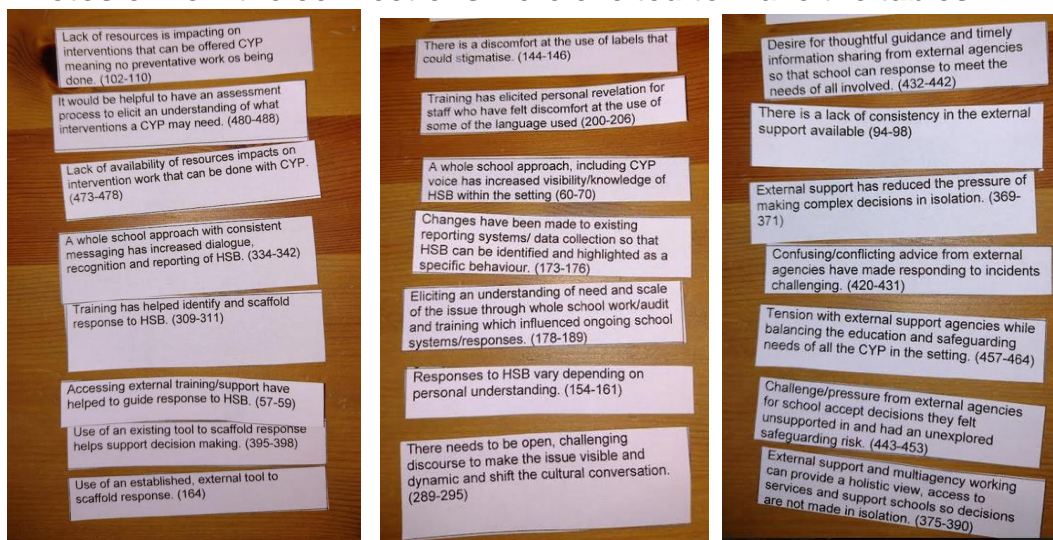 Lack of resources is impacting on
interventions that can be offered CYP
meaning no preventative work os being
done. (102-110)
It would be helpful to have an assessment
process to elicit an understanding of what
interventions a CYP may need. (480-488)
Lack of availability of resources impacts on
intervention work that can be done with CYP.
(473-478)
A whole school approach with consistent
messaging has increased dialogue,
recognition and reporting of HSB. (334-342)
Training has helped identify and scaffold
response to HSB. (309-311)
Accessing external training/support have
helped to guide response to HSB. (57-59)
Use of an existing tool to scaffold response
helps support decision making. (395-398)
Use of an established, external tool to
scaffold response. (164)
There is a discomfort at the use of labels that
could stigmatise. (144-146)
Training has elicited personal revelation for
staff who have felt discomfort at the use of
some of the language used (200-206)
A whole school approach, including CYP
voice has increased visibility/knowledge of
HSB within the setting (60-70)
Changes have been made to existing
reporting systems/ data collection so that
HSB can be identified and highlighted as a
specific behaviour. (173-176)
Eliciting an understanding of need and scale
of the issue through whole school work/audit
and training which influenced ongoing school
systems/responses. (178-189)
Responses to HSB vary depending on
personal understanding. (154-161)
There needs to be open, challenging
discourse to make the issue visible and
dynamic and shift the cultural conversation.
(289-295)
Desire for thoughtful guidance and timely
information sharing from external agencies
so that school can response to meet the
needs of all involved. (432-442)
There is a lack of consistency in the external
support available (94-98)
External support has reduced the pressure of
making complex decisions in isolation. (369-
371)
Confusing/conflicting advice from external
agencies have made responding to incidents
challenging. (420-431)
Tension with external support agencies while
balancing the education and safeguarding
needs of all the CYP in the setting. (457-464)
Challenge/pressure from external agencies
for school accept decisions they felt
unsupported in and had an unexplored
safeguarding risk. (443-453)
External support and multiagency working
can provide a holistic view, access to
services and support schools so decisions
are not made in isolation. (375-390)